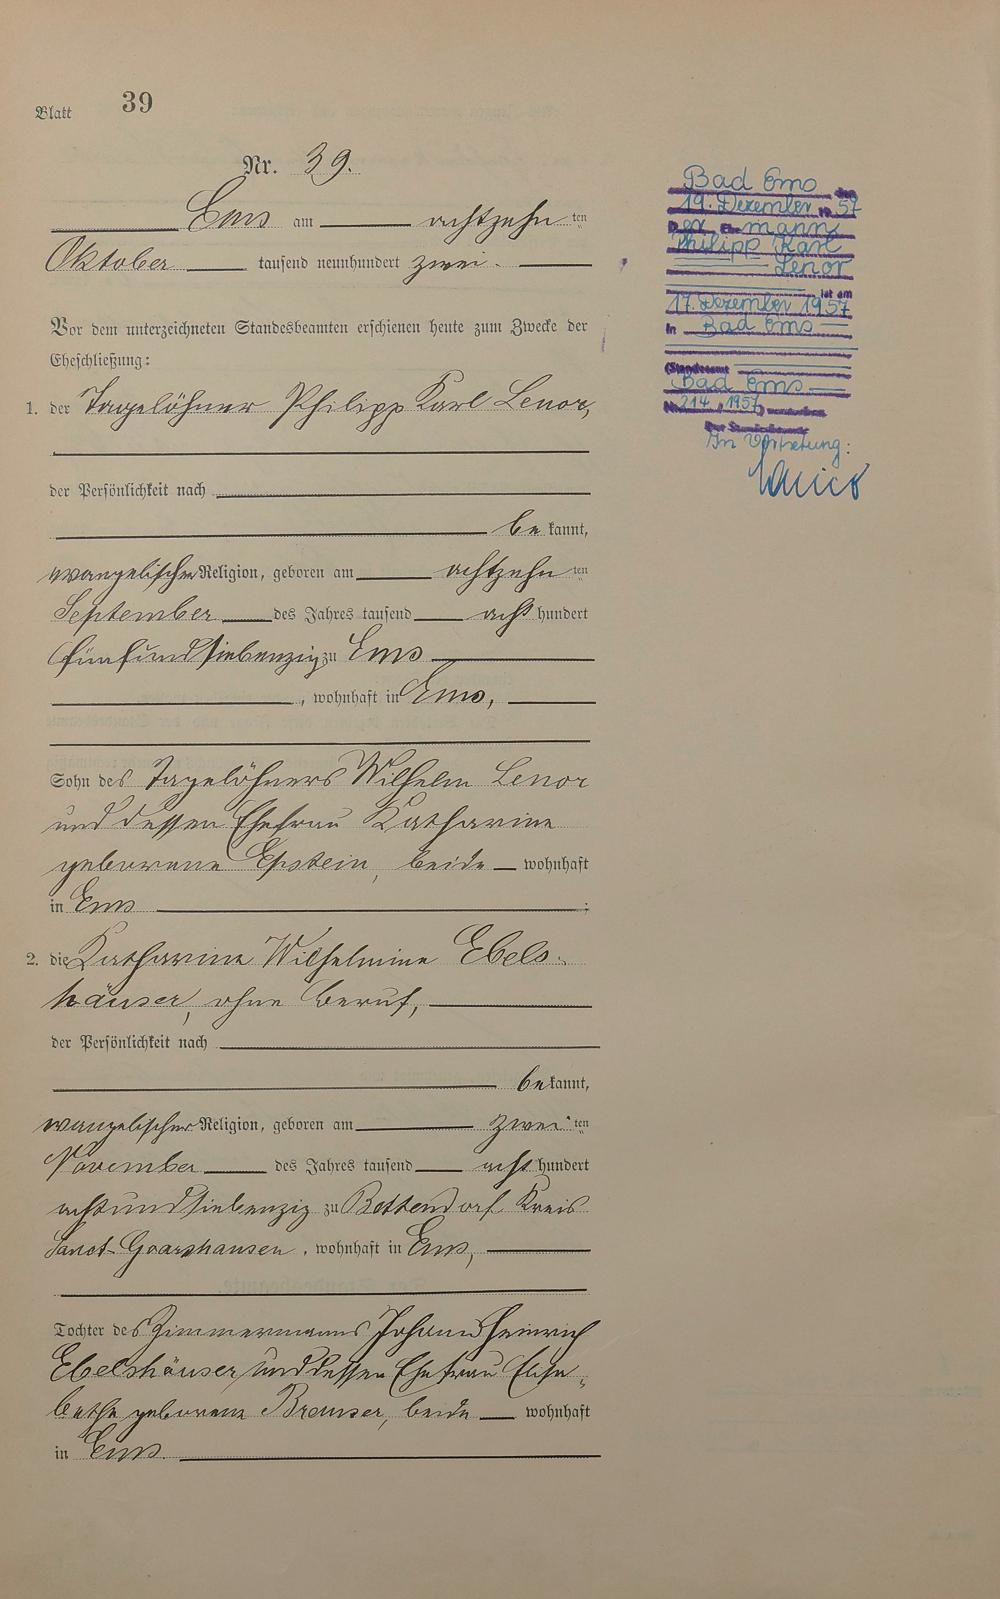 Blatt 39
Nr. 39.
Ems am achtzehn ten
Oktober tausend neunhundert zwei.
Vor dem unterzeichneten Standesbeamten erschienen heute zum Zwecke der
Eheschließung:
1. der Tagelöhner Philipp Karl Lenor,
der Persönlichkeit nach
be kannt,
evangelischer Religion, geboren am achtzehn ten
September des Jahres tausend acht hundert
fünfundsiebenzig zu Ems
, wohnhaft in Ems,
Sohn des Tagelöhners Wilhelm Lenor
und dessen Ehefrau Katharine
geborene Epstein, beide wohnhaft
in Ems ;
2. die Katharine Wilhelmine Ebels-
häuser, ohne Beruf,
der Persönlichkeit nach
be kannt,
evangelischer Religion, geboren am zwei ten
November des Jahres tausend acht hundert
achtundsiebenzig zu Bettendorf Kreis
Sanct-Goarshausen, wohnhaft in Ems,
Tochter des Zimmermanns Johann Heinrich
Ebelshäuser und dessen Ehefrau Elisa-
bethe geborene Bremser, beide wohnhaft
in Ems.
Bad Ems den
19. Dezember 19 57
Der Ehemann
Philipp Karl
Lenor
ist am
17. Dezember 1957
in Bad Ems
(Standesamt
Bad Ems
Nr. 214/1957) verstorben
Der Standesbeamte
In Vertretung: